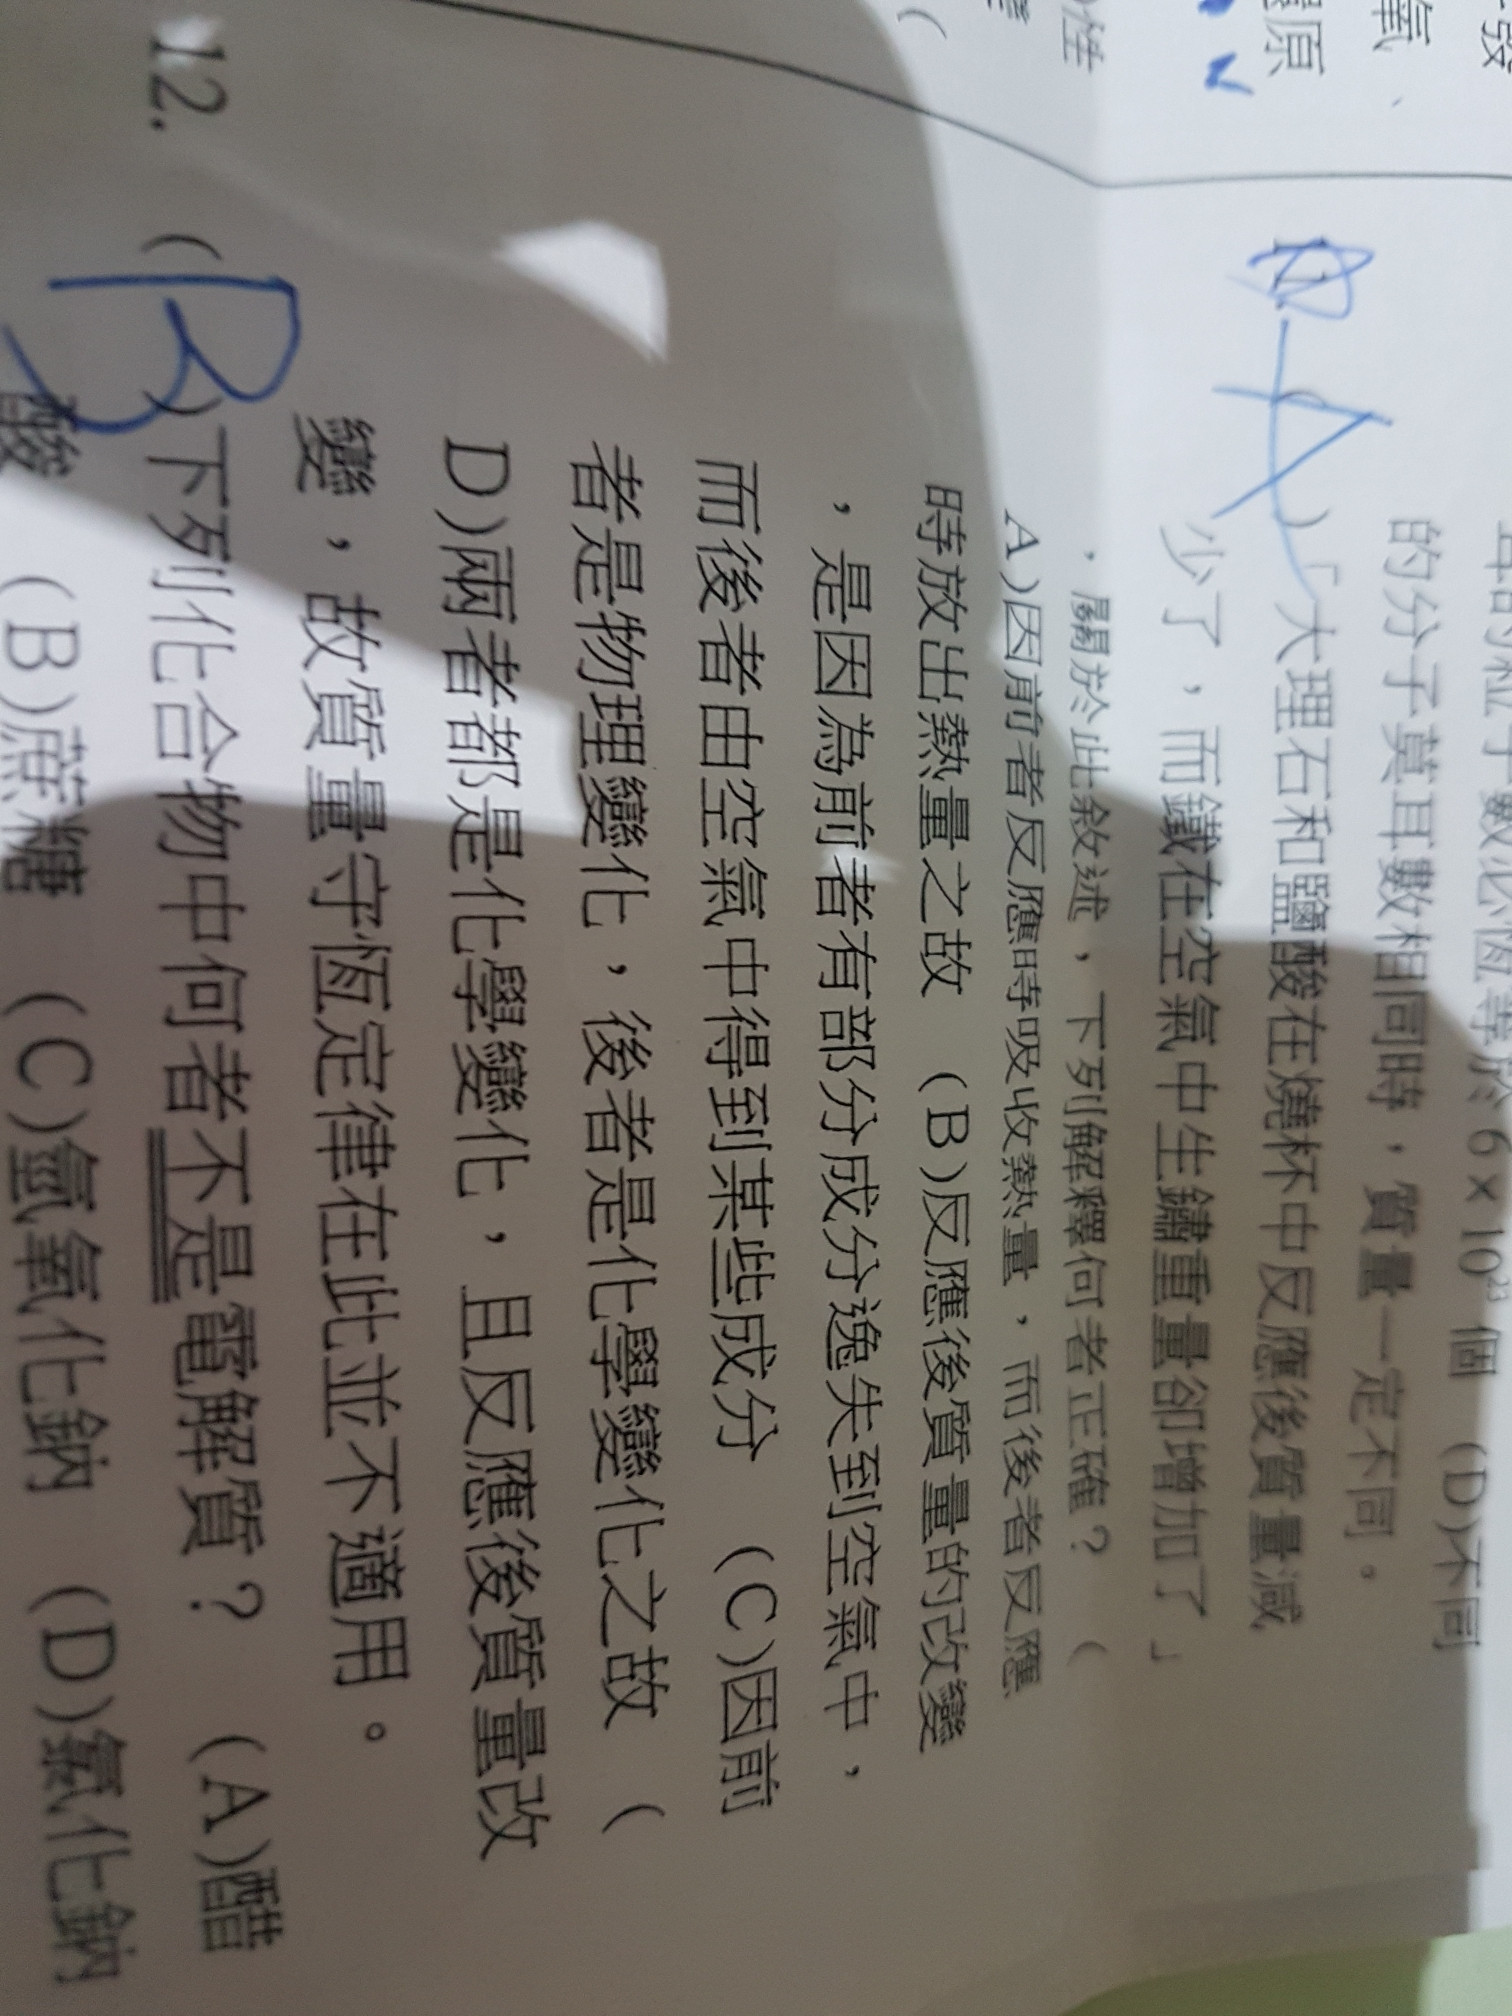 發
氧、
還原
性
(
6×10²³ 個 (D)不同
的分子莫耳數相同時，質量一定不同。
A )「大理石和鹽酸在燒杯中反應後質量減
少了，而鐵在空氣中生鏽重量卻增加了」
，關於此敘述，下列解釋何者正確？ (
A)因前者反應時吸收熱量，而後者反應
時放出熱量之故 (B)反應後質量的改變
，是因為前者有部分成分逸失到空氣中，
而後者由空氣中得到某些成分 (C)因前
者是物理變化，後者是化學變化之故 (
D)兩者都是化學變化，且反應後質量改
變，故質量守恆定律在此並不適用。
12. ( B )下列化合物中何者不是電解質？ (A)醋
酸 (B)蔗糖 (C)氫氧化鈉 (D)氯化鈉